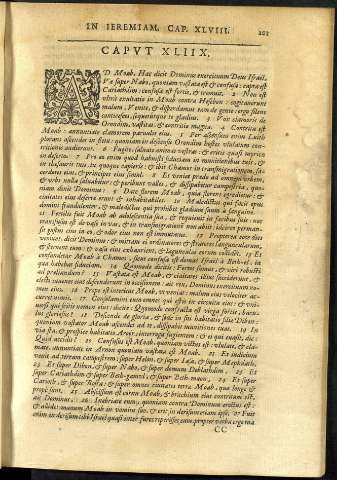 IN IEREMIAM. CAP. XLVIII.
201
CAPVT XLIIX.
D Moab. Hæc dicit Dominus exercituum Deus Israel.
Væ super Nabo, quoniam vastata est & confusa: capta est
Cariathiim: confusa est fortis, & tremuit. 2 Non est
vltra exultatio in Moab contra Hesebon: cogitauerunt
malum. Venite, & disperdamus eam de gente: ergo silens
conticesces, sequeturque te gladius. 3 Vox clamoris de
Oronaim, vastitas, & contritio magna. 4 Contrita est
Moab: annuntiate clamorem paruulis eius. 5 Per ascensum enim Luith
plorans ascendet in fletu: quoniam in descensu Oronaim hostes vlulatum con-
tritionis audierunt. 6 Fugite, saluate animas vestras: & eritis quasi myricæ
in deserto. 7 Pro eo enim quod habuisti fiduciam in munitionibus tuis, &
in thesauris tuis, tu quoque capieris: & ibit Chamos in transmigrationem, sa-
cerdotes eius, & principes eius simul. 8 Et veniet prædo ad omnem vrbem,
& vrbs nulla saluabitur: & peribunt valles, & dissipabuntur campestria, quo-
niam dixit Dominus: 9 Date florem Moab, quia florens egredietur: &
ciuitates eius desertæ erunt & inhabitabiles. 10 Maledictus qui facit opus
domini fraudulenter: & maledictus qui prohibet gladium suum a sanguine.
11 Fertilis fuit Moab ab adolescentia sua, & requieuit in fæcibus suis: nec
transfusus est de vase in vas, & in transmigrationem non abiit: idcirco perman-
sit gustus eius in eo, & odor eius non est immutatus. 12 Propterea ecce dies
veniunt: dicit Dominus: & mittam ei ordinatores & stratores laguncularum,
& sternent eum: & vasa eius exhaurient, & lagunculas eorum collident. 13 Et
confundetur Moab a Chamos, sicut confusa est domus Israel a Bethel, in
qua habebat fiduciam. 14 Quomodo dicitis: Fortes sumus, & viri robusti
ad præliandum? 15 Vastata est Moab, & ciuitates illius succiderunt, &
electi iuuenes eius descenderunt in occisionem: ait rex, Dominus exercituum no-
men eius. 16 Prope est interitus Moab, vt veniat: malum eius velociter ac-
curret nimis. 17 Consolamini eum omnes qui estis in circuitu eius: & vni-
uersi qui scitis nomen eius, dicite: Quomodo confracta est virga fortis, bacu-
lus gloriosus? 18 Descende de gloria, & sede in siti habitatio filiæ Dibon:
quoniam vastator Moab ascendet ad te, dissipabit munitiones tuas. 19 In
via sta, & prospice habitatio Aroer: interroga fugientem: & ei qui euasit, dic:
Quid accidit? 20 Confusus est Moab, quoniam victus est: vlulate, & cla-
mate, annuntiate in Arnon quoniam vastata est Moab. 21 Et iudicium
venit ad terram campestrem: super Helon, & super Iasa, & super Mephaath.
22 Et super Dibon, & super Nabo, & super domum Deblathaim. 23 Et
super Cariathaim & super Beth-gamul, & super Beth-maon, 24 Et super
Carioth, & super Bosra: & super omnes ciuitates terræ Moab, quæ longe &
prope sunt. 25 Abscissum est cornu Moab, & brachium eius contritum est,
ait Dominus: 26 Inebriate eum, quoniam contra Dominum erectus est:
& allidet manum Moab in vomitu suo, & erit in derisum etiam ipse. 27 Fuit
enim in derisum tibi Israel: quasi inter fures reperisses eum: propter verba ergo tua
CC